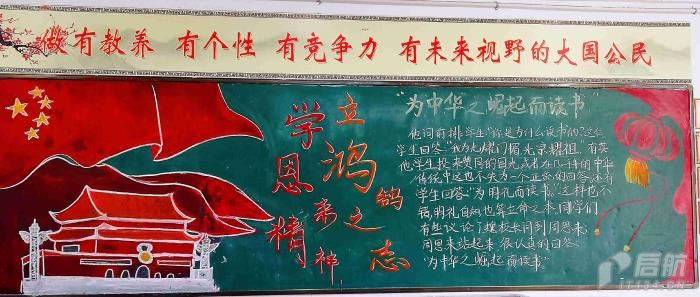 做有教养 有个性 有竞争力 有未来视野的大国公民
学恩来精神
立鸿鹄之志
"为中华之崛起而读书"
他问前排学生"你是为什么读书的?"这位
学生回答:"我为光耀门楣,光宗耀祖"有其
他学生投来赞同的目光或者在几千年的中华
传统中这也不失为一个正确的回答;还有
学生回答:"为明礼而读书,"这样也不
错,明礼自知也算立命之本,同学们
有些议论了,魏校长问到周恩来,
周恩来站起来,很认真的回答:
"为中华之崛起而读书"
启航